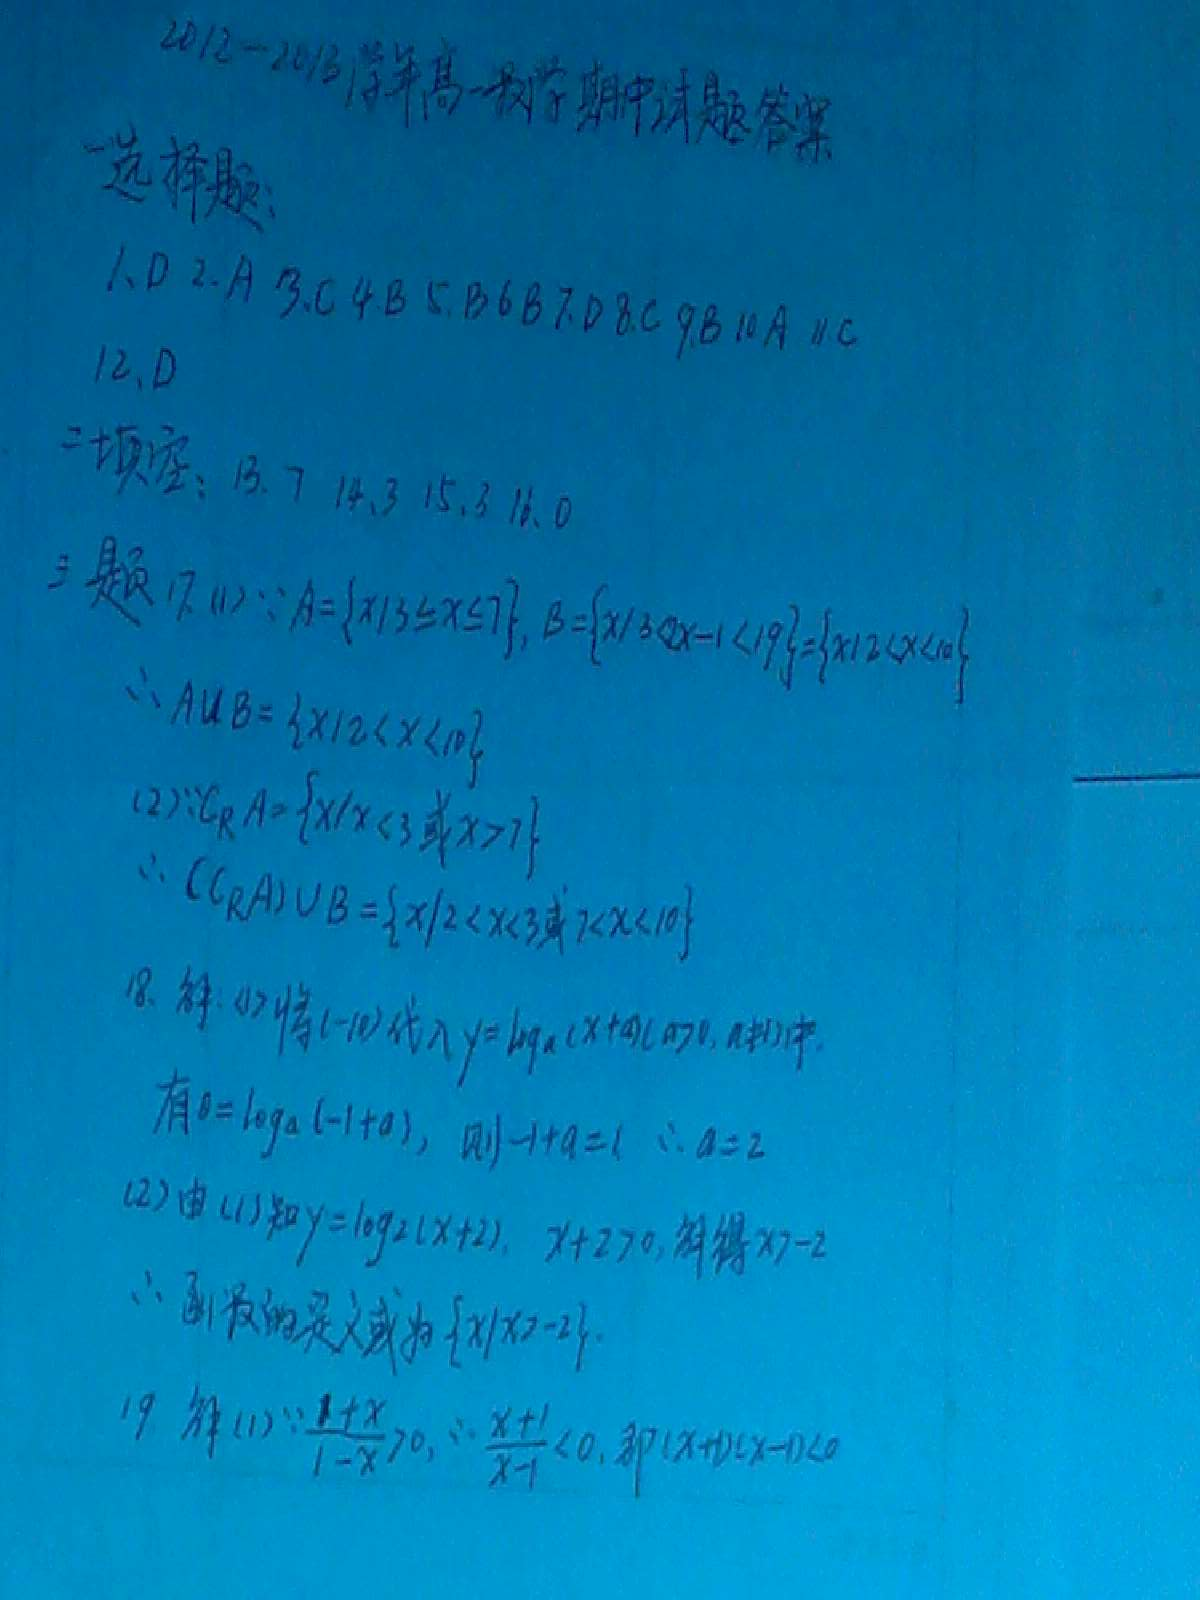 2012-2013学年高一数学期中试题答案
一选择题:
1、D 2.A 3.C 4.B 5.B 6B 7.D 8.C 9.B 10 A 11.C
12、D
二填空: 13.7 14、3 15、3 16、0
三题 17.(1)∵A={x/3≤x≤7}, B={x/3<2x-1<19}={x/2<x<10}
∴A∪B={x/2<x<10}
(2)∵C_R A={x/x<3或x>7}
∴(C_R A)∪B={x/2<x<3或7<x<10}
18. 解:(1)将(-10)代入y=log_a(x+a)(a>0,a≠1)中.
有0=log_a(-1+a), 则-1+a=1 ∴a=2
(2)由(1)知y=log2(x+2), x+2>0,解得x>-2
∴函数的定义域为{x/x>-2}.
19 解(1)∵(1+x)/(1-x)>0,∴(x+1)/(x-1)<0,即(x+1)(x-1)<0